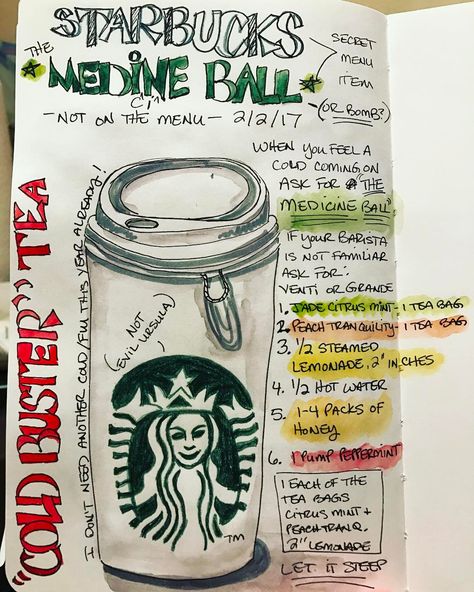 STARBUCKS
THE
MEDINE BALL
CI
- NOT ON THE MENU - 2/2/17
SECRET
MENU
ITEM
(OR BOMB?)
"COLD BUSTER" TEA
I DON'T NEED ANOTHER COLD/FLU THIS YEAR ALREADY!
WHEN YOU FEEL A
COLD COMING ON
ASK FOR "THE
MEDICINE BALL"
IF YOUR BARISTA
IS NOT FAMILIAR
ASK FOR:
VENTI OR GRANDE
1. JADE CITRUS MINT - 1 TEA BAG
2. PEACH TRANQUILITY - 1 TEA BAG
3. 1/2 STEAMED
LEMONADE, 2" INCHES
4. 1/2 HOT WATER
5. 1-4 PACKS OF
HONEY
6. 1 PUMP PEPPERMINT
1 EACH OF THE
TEA BAGS
CITRUS MINT +
PEACH TRANQ.
2" LEMONADE
LET IT STEEP
(NOT
EVIL URSULA)
TM